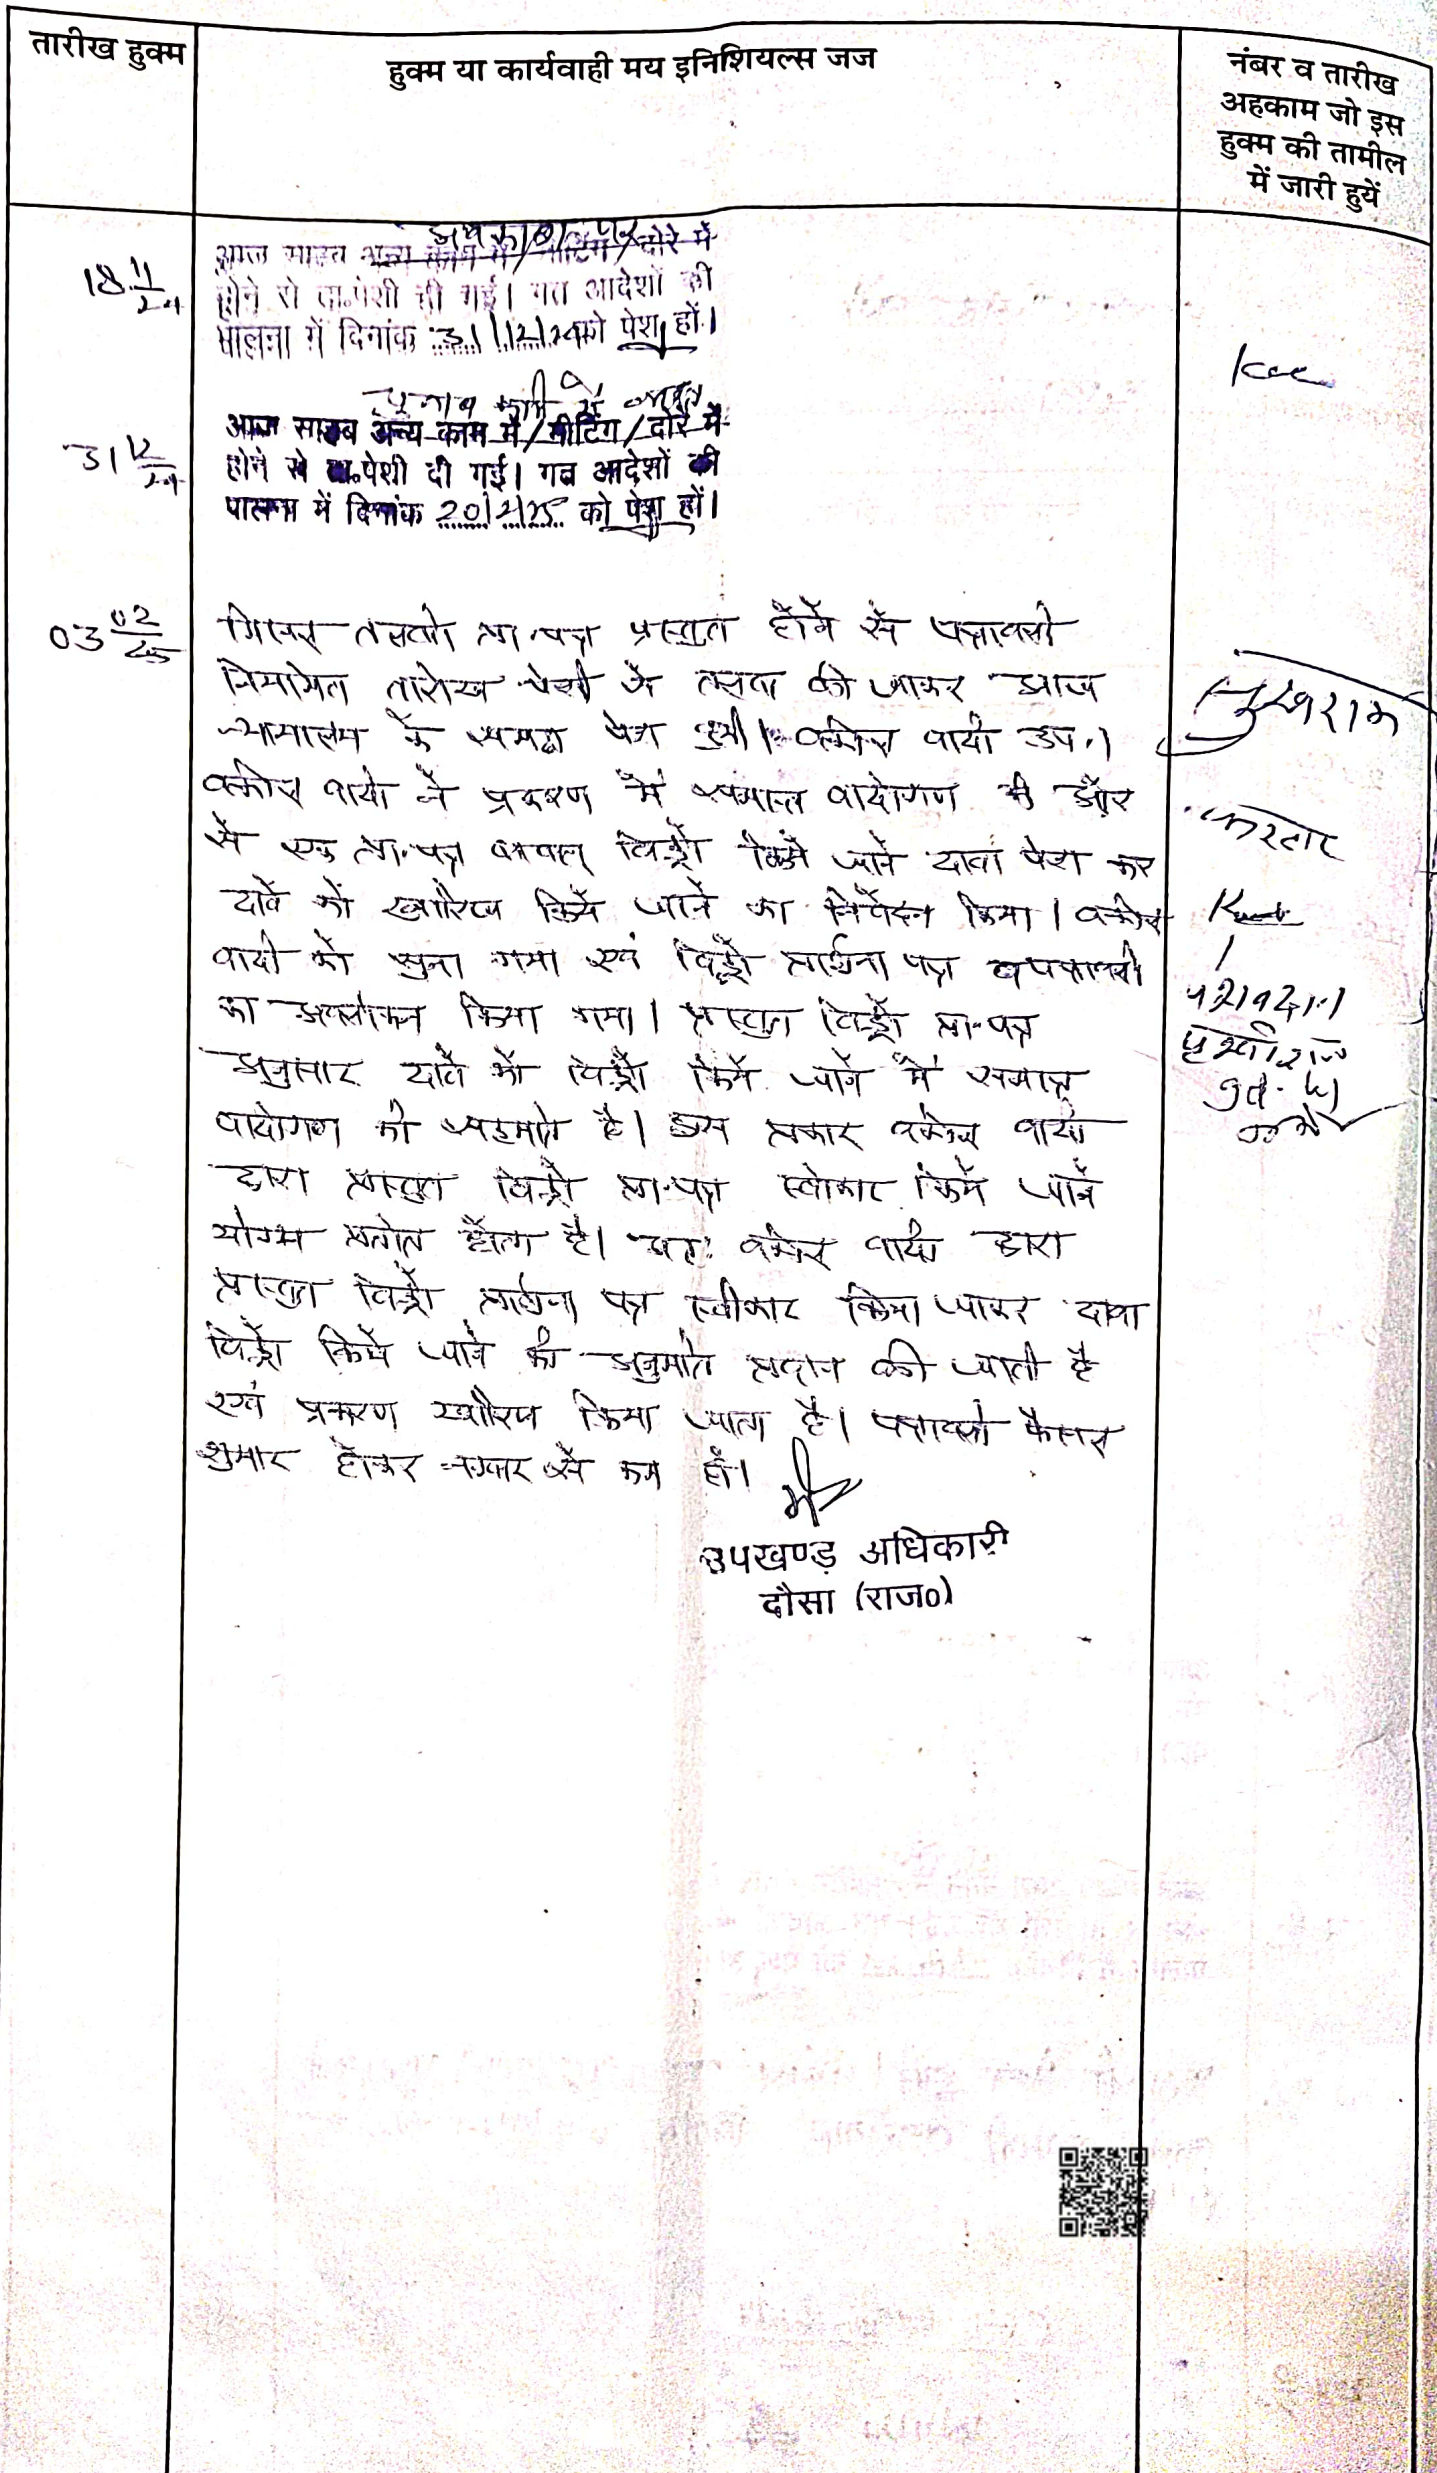 तारीख हुक्म
हुक्म या कार्यवाही मय इनिशियल्स जज
नंबर व तारीख
अहकाम जो इस
हुक्म की तामील
में जारी हुयें
18 11/24
अवकाश पर
आज साहब अन्य काम में/मीटिंग/दोरे में
होने से ता.पेशी दी गई। गत आदेशों की
पालना में दिनांक 31/12/24 को पेश हों।
31 12/24
चुनाव कार्य में व्यस्त
आज साहब अन्य काम में/मीटिंग/दोरे में
होने से ता.पेशी दी गई। गत आदेशों की
पालना में दिनांक 20/2/25 को पेश हों।
03 02/25
मिसल तलबी प्रा.पत्र प्रस्तुत होने से पत्रावली
नियमित तारीख पेशी से तलब की जाकर आज
न्यायालय के समक्ष पेश हुयी। वकील वादी उप.।
वकील वादी ने प्रकरण में समस्त वादीगण की ओर
से एक प्रा.पत्र बाबत् विड्रो किये जाने दावा पेश कर
दावे को खारिज किये जाने का निवेदन किया। वकील
वादी को सुना गया एवं विड्रो प्रार्थना पत्र व पत्रावली
का अवलोकन किया गया। प्रस्तुत विड्रो प्रा.पत्र
अनुसार दावे को विड्रो किये जाने में समस्त
वादीगण की सहमति है। इस प्रकार वकील वादी
द्वारा प्रस्तुत विड्रो प्रा.पत्र स्वीकार किये जाने
योग्य प्रतीत होता है। अतः वकील वादी द्वारा
प्रस्तुत विड्रो प्रार्थना पत्र स्वीकार किया जाकर दावा
विड्रो किये जाने की अनुमति प्रदान की जाती है
एवं प्रकरण खारिज किया जाता है। पत्रावली फैसल
शुमार होकर नम्बर से कम हो।
उपखण्ड अधिकारी
दौसा (राज०)
सुखराम
करतार